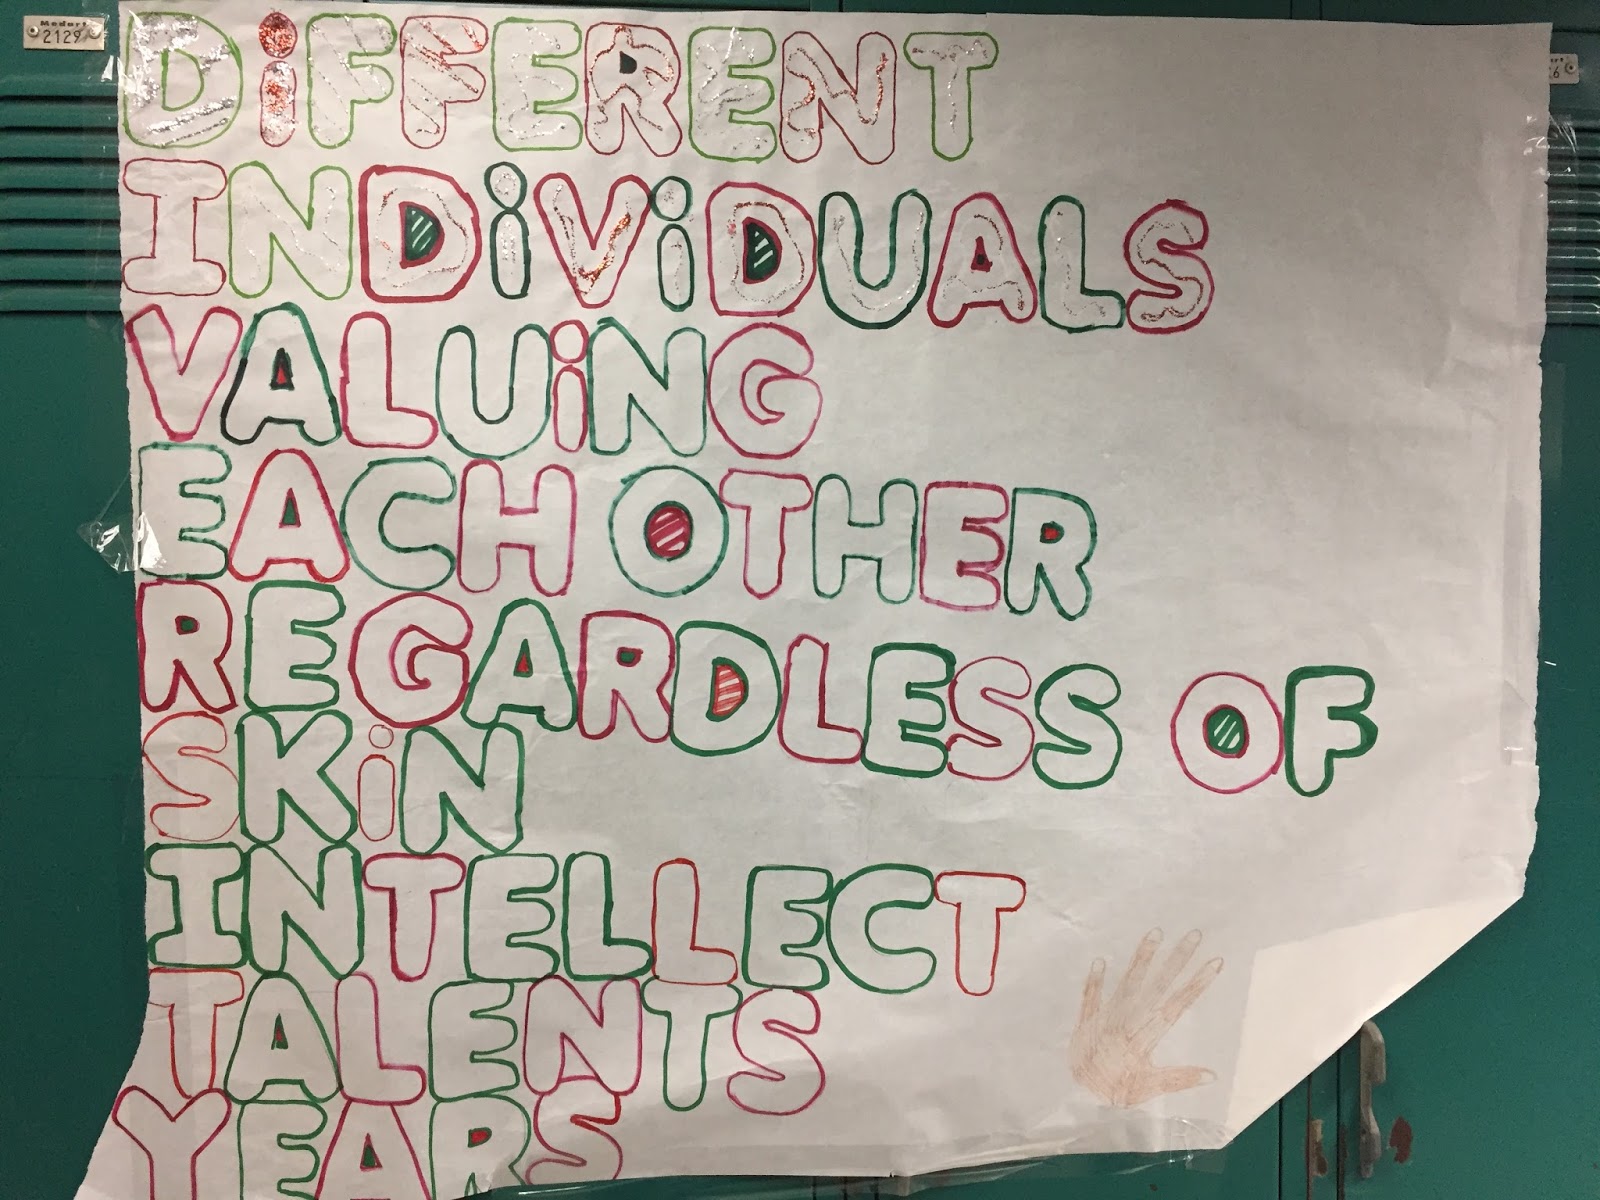 Medart
2129
DiFFERENT
INDiViDUALS
VALUiNG
EACH OTHER
REGARDLESS OF
SKiN
INTELLECT
TALENTS
YEARS